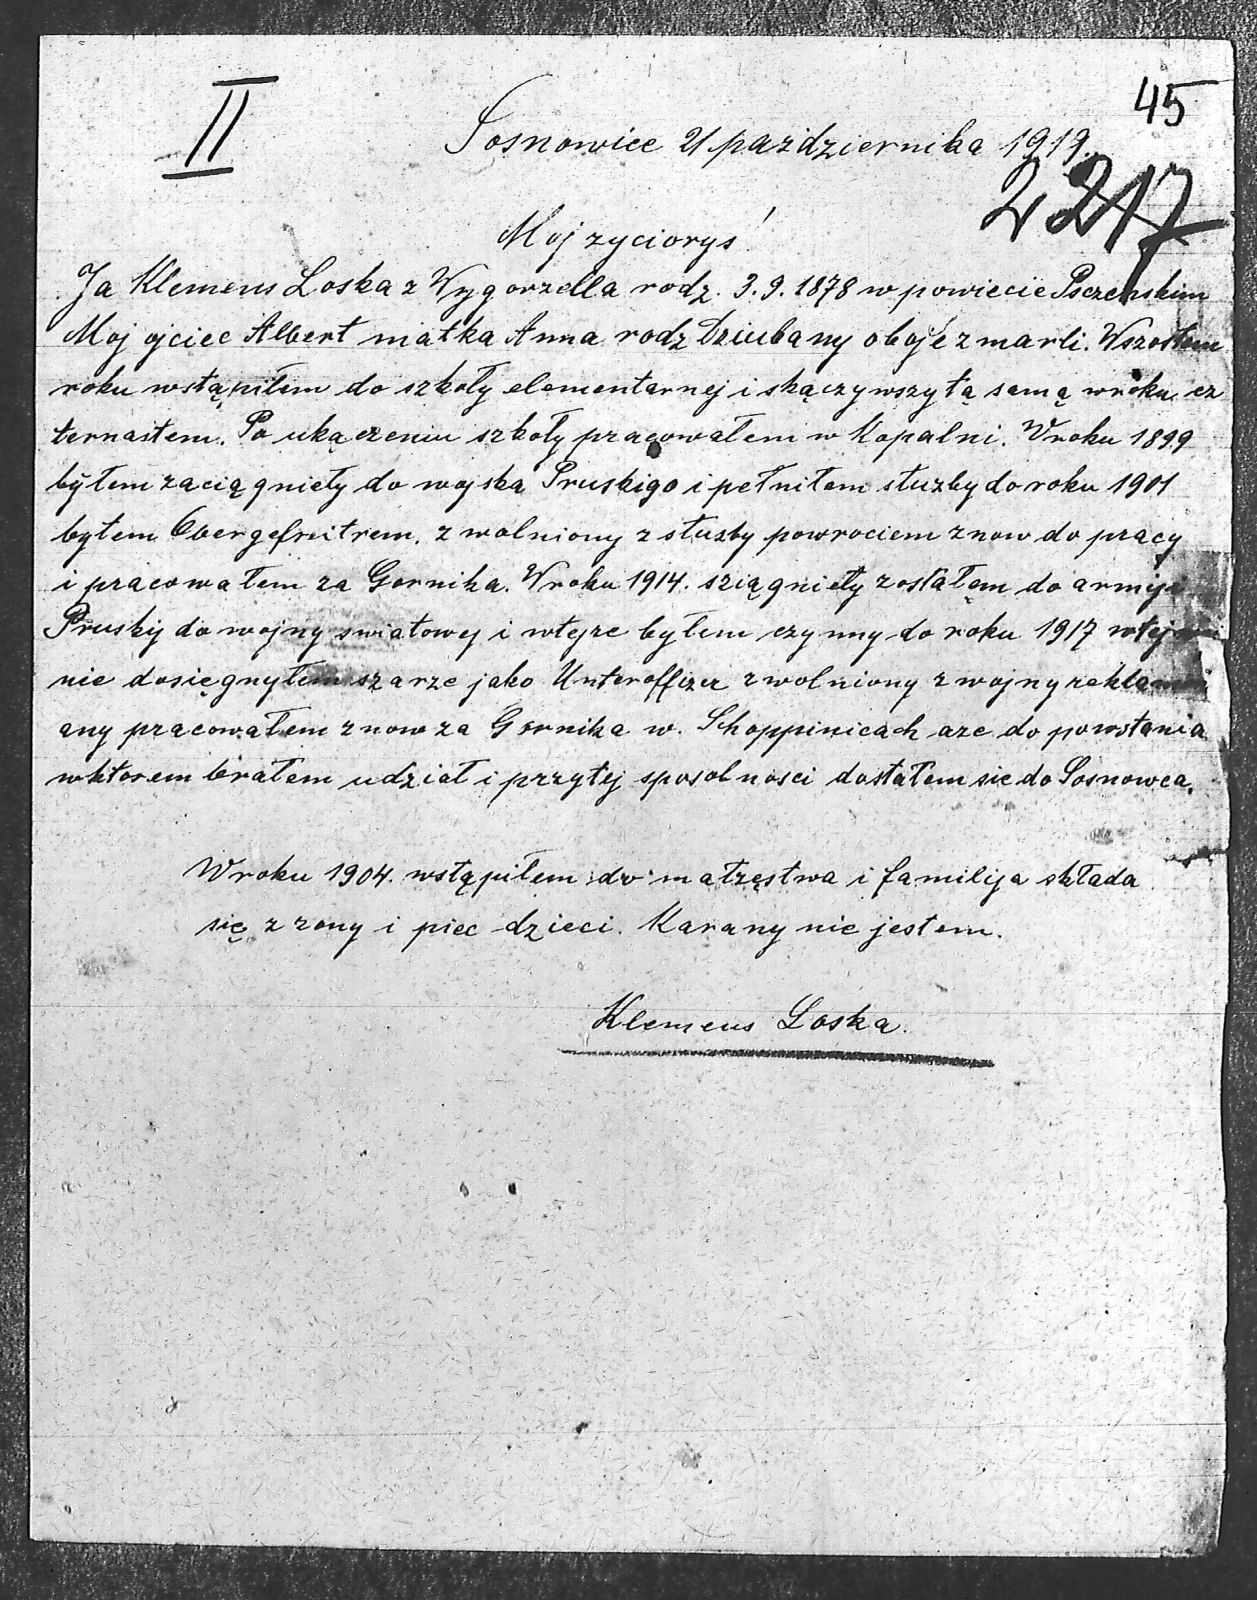 II
45
Sosnowice 21 pazdziernika 1919.
2217
Moj zyciorys!
Ja Klemens Loska z Wygorzella rodz. 3.9.1878 w powiecie Psczenskim
Moj ojciec Albert matka Anna rodz Dziubany oboje zmarli. Wszostem
roku wstąpiłem do szkoły elementarnej i skączywszy tą samą wroku cz
ternastem. Po ukączeniu szkoły pracowałem w Kopalni. Wroku 1899
byłem zaciągniety do wojska Pruskigo i pełniłem służby do roku 1901
byłem Obergefreitrem, zwolniony z służby powrociem znow do pracy
i pracowałem za Gornika. Wroku 1914. sciągniety zostałem do armije
Pruskij do wojny swiatowej i wtejze byłem czynny do roku 1917 wtej
nie dosięgnyłem szarze jako Unteroffizer zwolniony z wojny reklamow
any pracowałem znow za Gornika w. Schoppinicach aze do powstania
wktorem brałem udział i przytej sposobnosci dostałem sie do Sosnowca.
Wroku 1904. wstąpiłem do małzęstwa i familija składa
się z zony i piec dzieci. Karany nie jestem.
Klemens Loska.